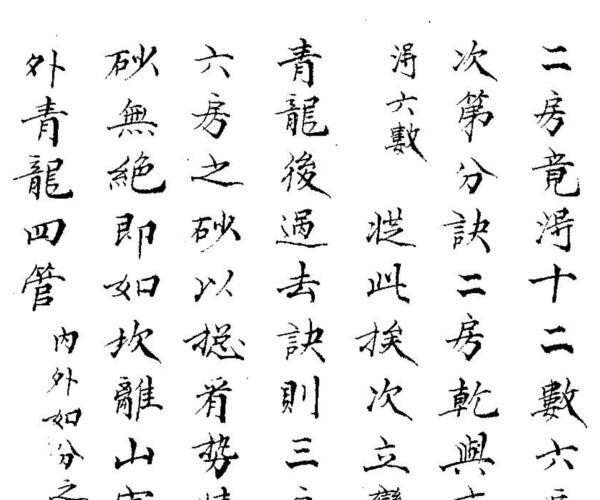 二房竟淂十二數六
次第分訣二房乾與
淂六數 從此挨次立
青龍後過去訣則三
六房之砂以摠看勢
砂無絕即如坎離山
外青龍四管 內外如分之